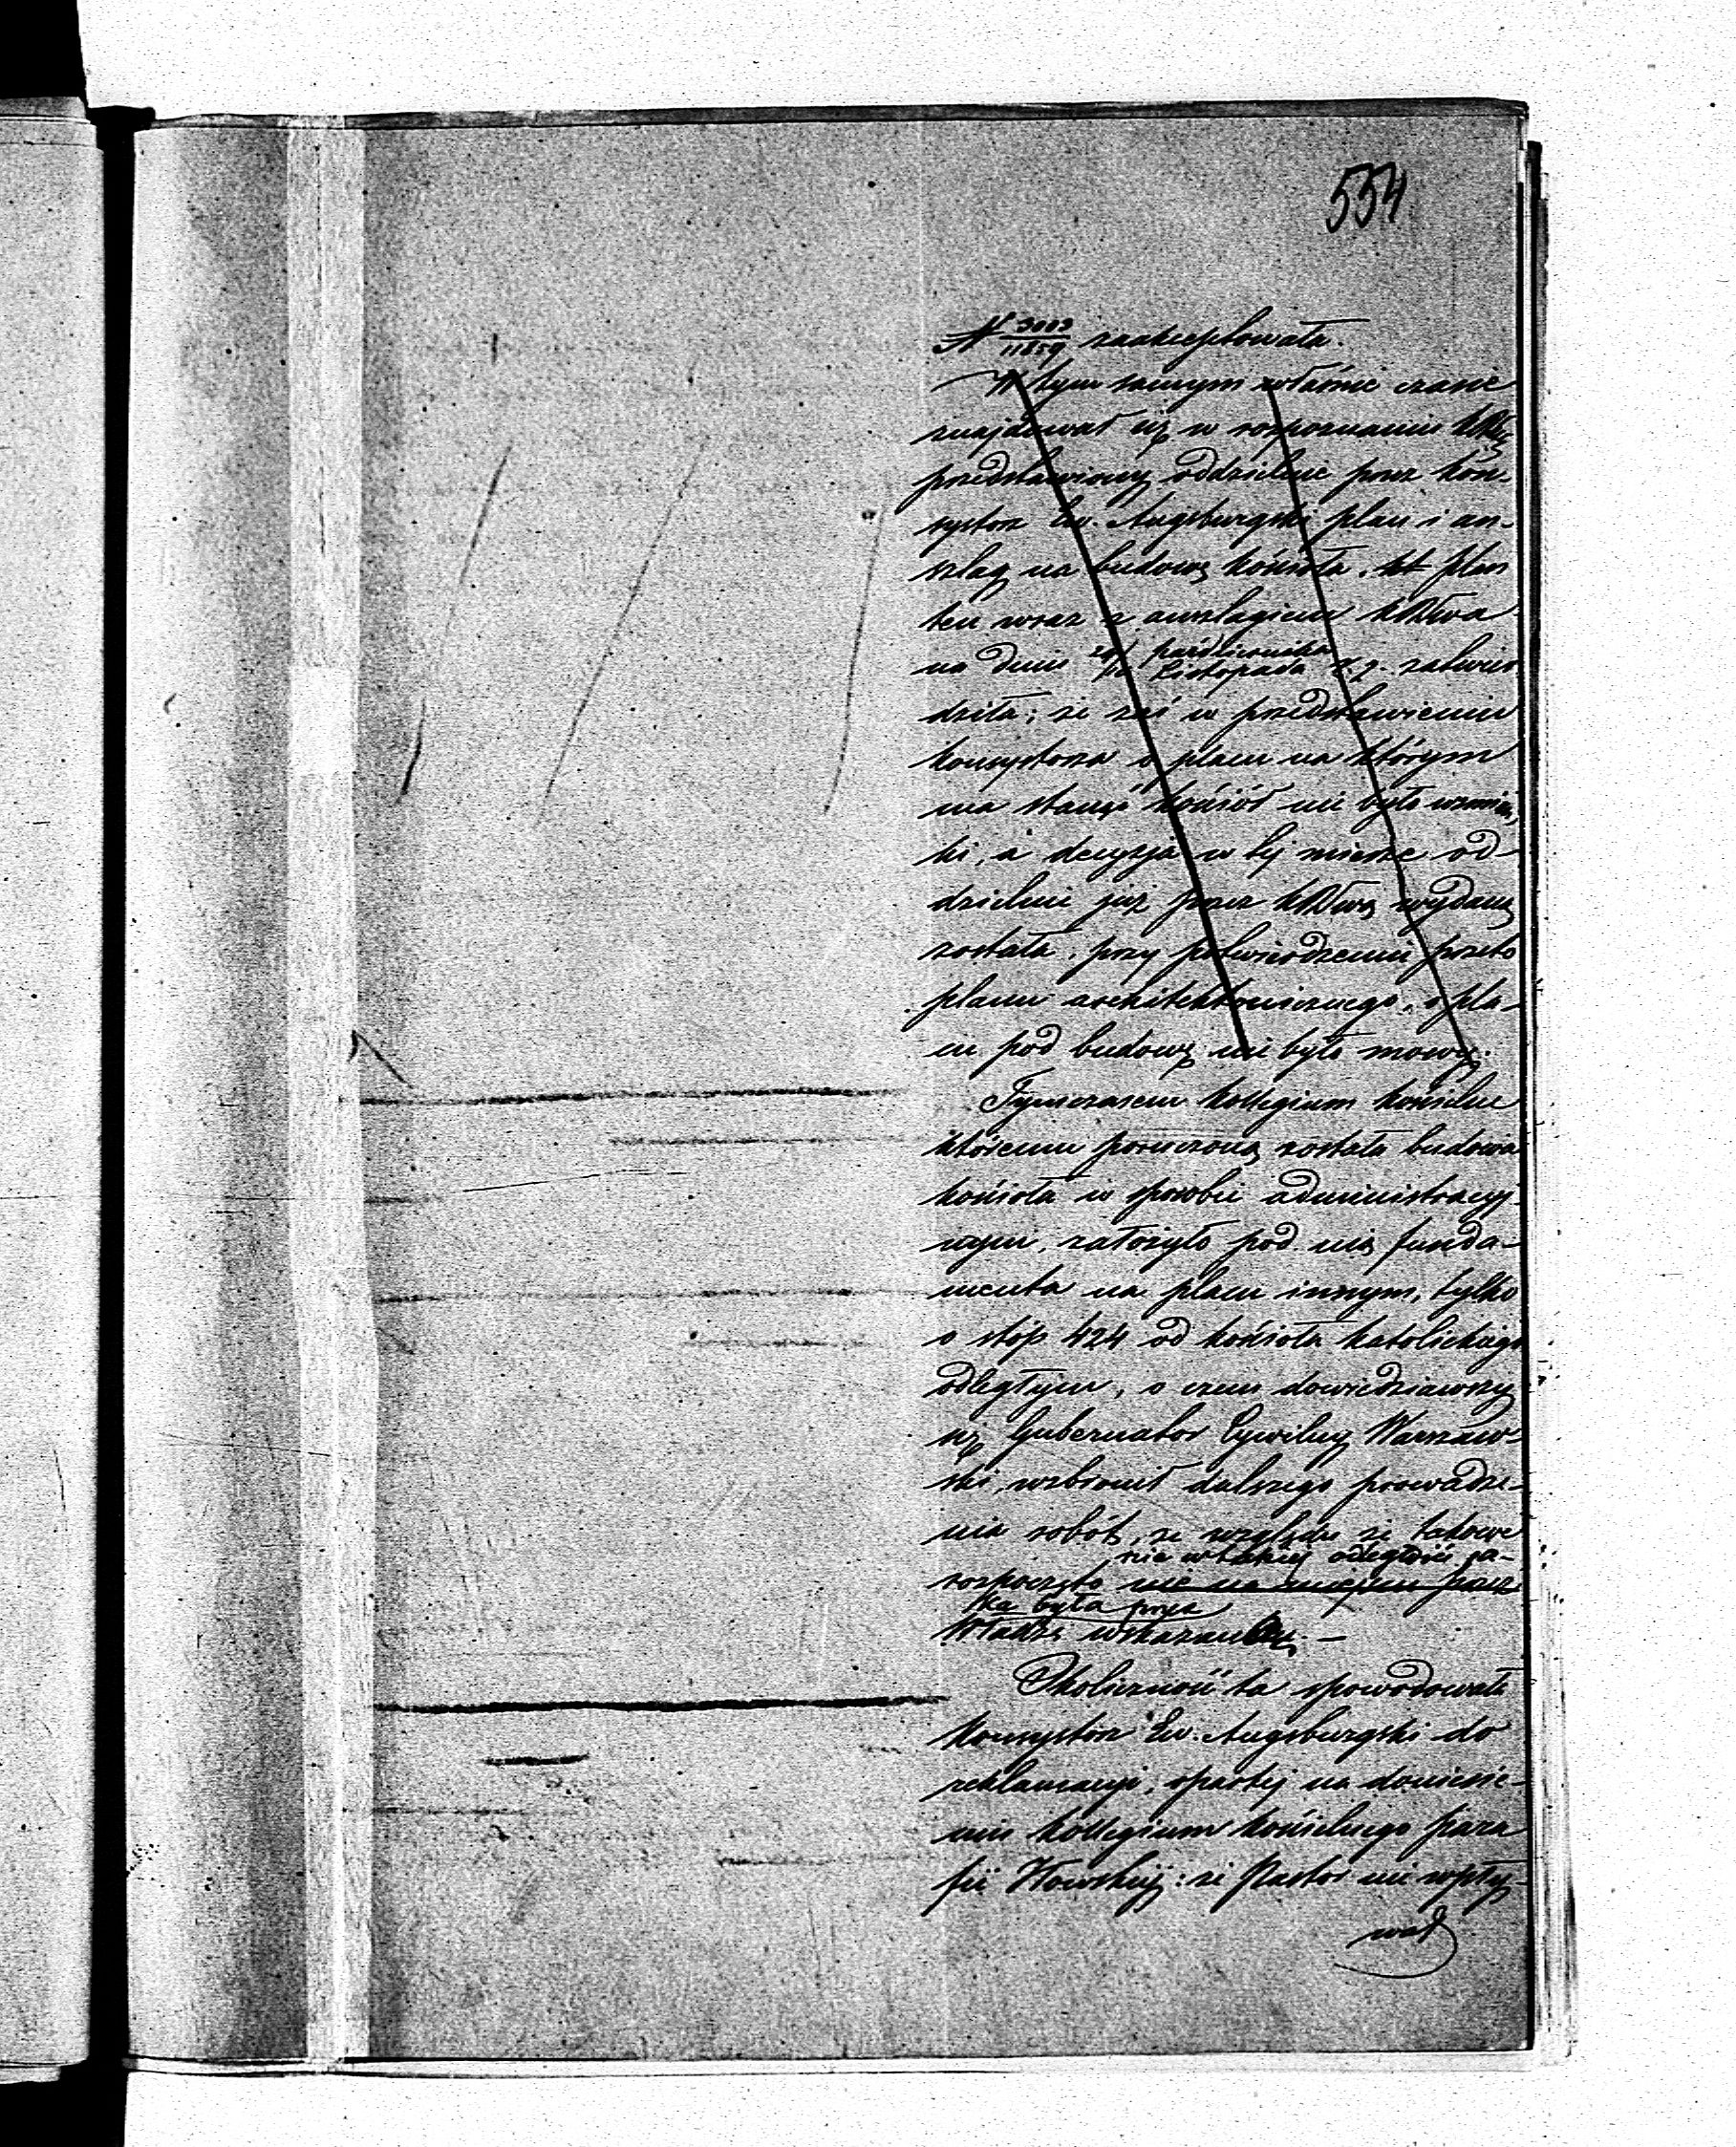 554
N 3003/11859 zaakceptowała.
W tym samym właśnie czasie
znajdował się w rozpoznaniu
przedstawiony oddzielnie przez Kon-
systorz Ew. Augsburgski plan i an-
szlag na budowę kościoła. plan
ten wraz z anszlagiem KRząwa
na dniu Października
Listopada r. z. zatwier
dziła; że zaś w przedstawieniu
konsystorza o placu na którym
ma stanąć kościół nie było wzmian
ki, a decyzja w tej mierze od-
dzielnie już przez wydaną
została, przy potwierdzeniu przeto
planu architektonicznego, o pla-
cu pod budowę nie było mowy.
Tymczasem Kollegium kościelne
któremu poruczoną została budowa
kościoła w sposobie administracyj-
nym, założyło pod nią funda-
menta na placu innym, tylko
o stóp 424 od kościoła katolickiego
odległym, o czem dowiedziawszy
się Gubernator Cywilny Warszaw-
ski, wzbronił dalszego prowadze-
nia robót, ze względu że takowe
nie w takiej odległości ja-
rozpoczęto nie na miejscu przez
ka była przez
Władzę wskazaną. —
Okoliczność ta spowodowała
Konsystorz Ew. Augsburgski do
reklamacyi, opartej na doniesie-
niu Kollegium kościelnego para
fii Iłowskiej: że Pastor nie wpły-
wał